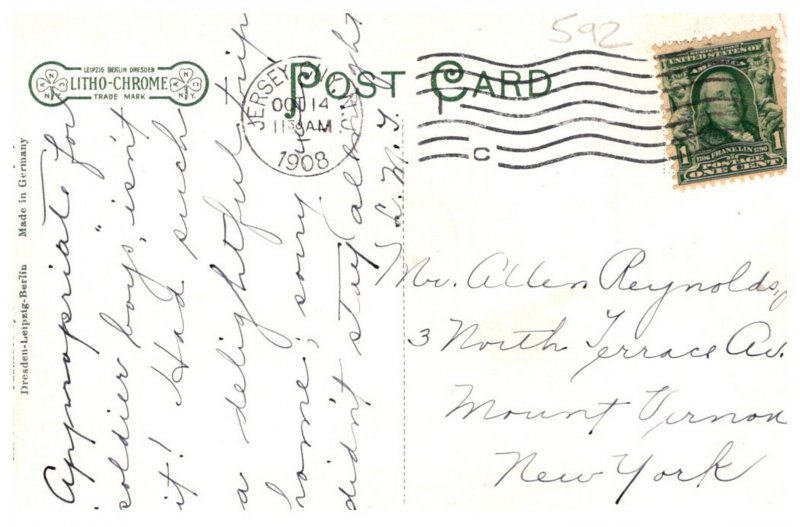 592
LEIPZIG BERLIN DRESDEN
LITHO-CHROME
TRADE MARK
POST CARD
JERSEY CITY, N.J.
OCT 14
11 30 AM
1908
C
UNITED STATES OF
AMERICA
1 1
FRANKLIN
POSTAGE
ONE CENT
Made in Germany
Dresden-Leipzig-Berlin
Appropriate for
"soldier boys", isn't
it! Had such
a delightful trip
home; sorry u
didn't stay all night
L. M. J.
Mr. Allen Reynolds,
3 North Terrace Av.
Mount Vernon
New York